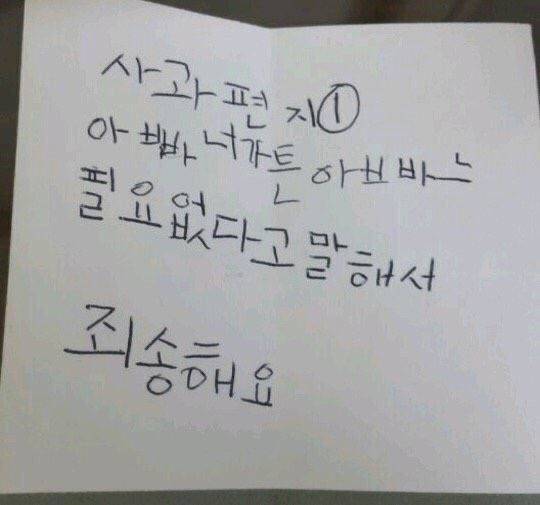 사과편지①
아빠 너가튼 아브바는
필요없다고 말해서
죄송해요